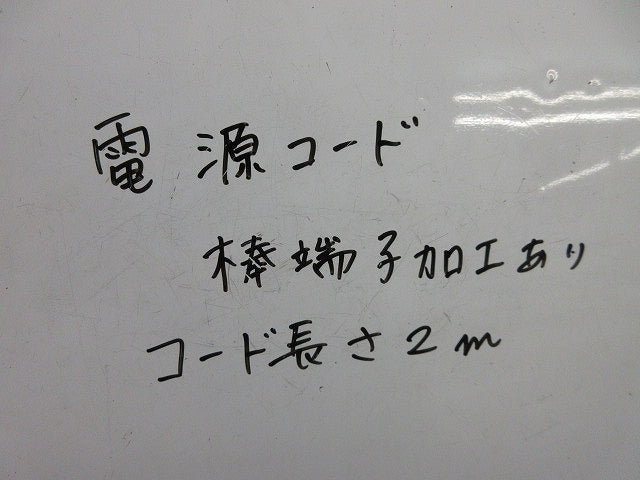 電源コード
棒端子加工あり
コード長さ2m